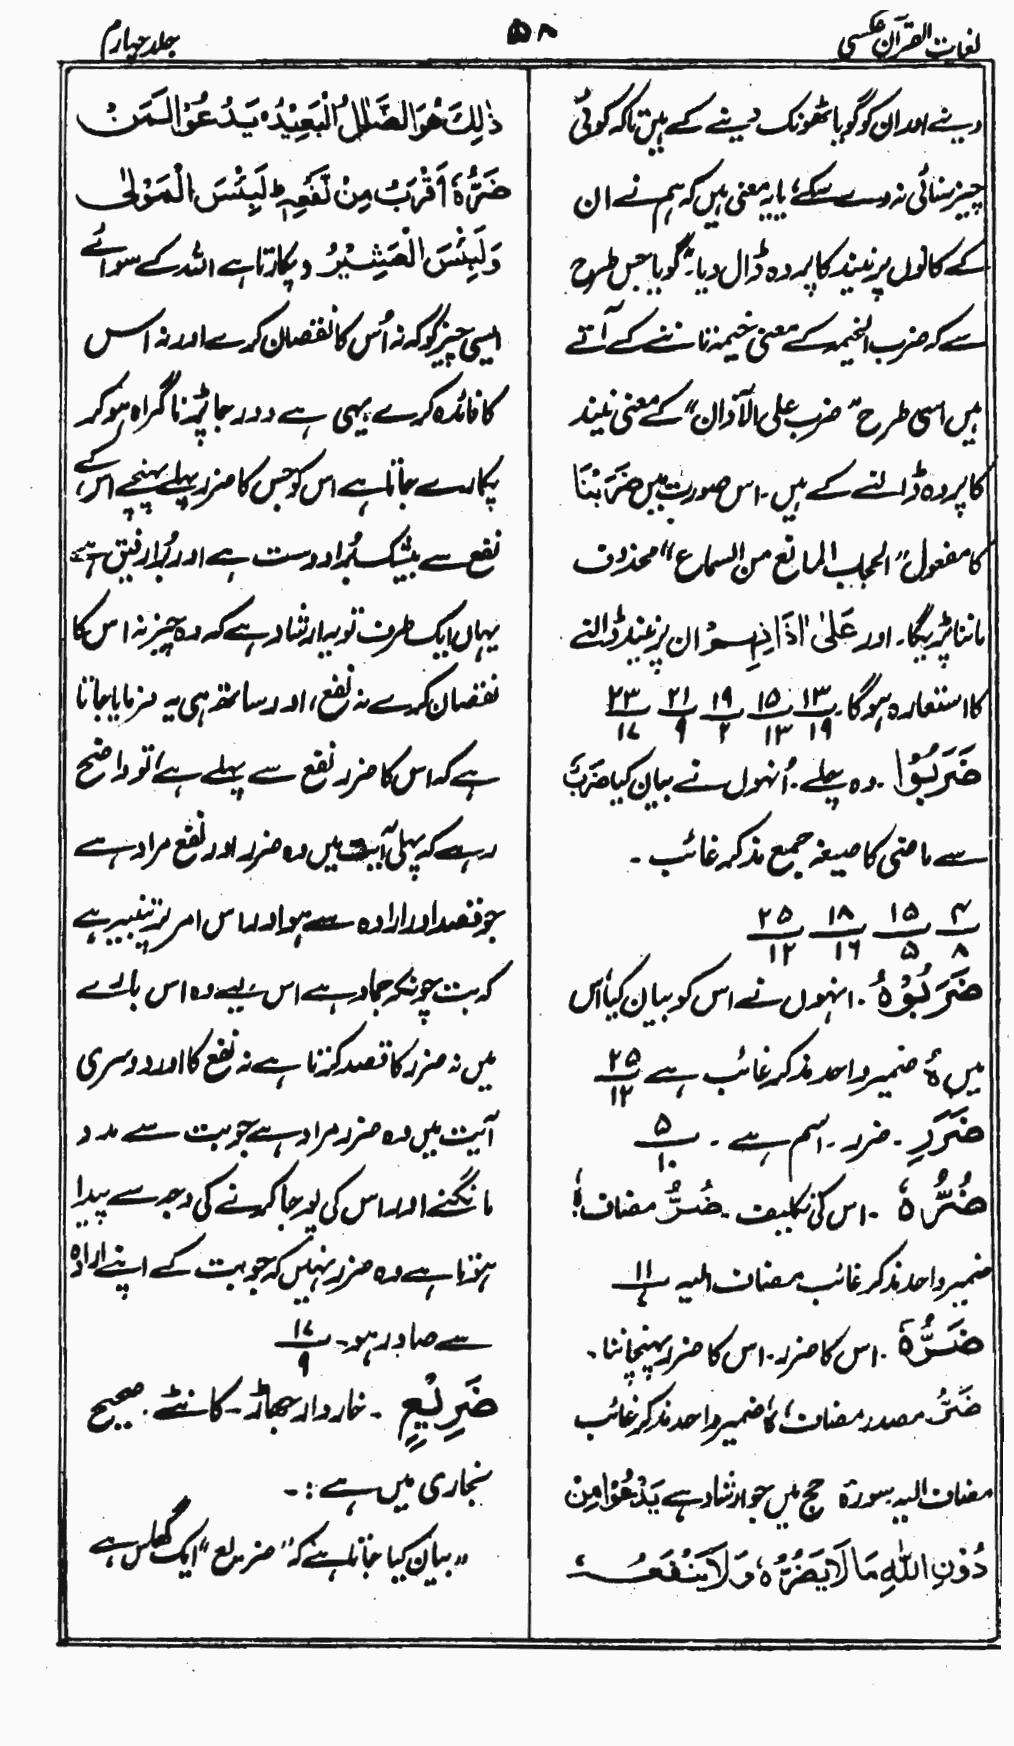 لغات القرآن عکسی
۵۸
جلد چہارم
دینے اور ان کو گویا ٹھونک دینے کے ہیں تاکہ کوئی
چیز سنائی نہ دے سکے، یا یہ معنی ہیں کہ ہم نے ان
کے کانوں پر نیند کا پردہ ڈال دیا۔ گویا جس طرح
سے کہ ضرب الخیمہ کے معنی خیمہ تاننے کے آتے
ہیں اسی طرح "ضرب علی الآذان" کے معنی نیند
کا پردہ ڈالنے کے ہیں۔ اس صورت میں ضَرَبْنَا
کا مفعول "الحجاب المانع من السماع" محذوف
ماننا پڑیگا۔ اور عَلٰۤی اٰذَانِهِمْ ان پر نیند ڈالنے
کا استعارہ ہوگا۔ ۱۳/۱۹ ۱۵/۱۳ ۱۹/۲ ۲۱/۹ ۲۳/۱۷
ضَرَبُوْا۔ وہ چلے۔ اُنہوں نے بیان کیا ضَرْبٌ
سے ماضی کا صیغہ جمع مذکر غائب۔
۴/۸ ۱۵/۵ ۱۸/۱۶ ۲۵/۱۲
ضَرَبُوْهُ۔ انہوں نے اس کو بیان کیا، اس
میں ہُ ضمیر واحد مذکر غائب ہے ۲۵/۱۲
ضَرَرٍ۔ ضرر۔ اسم ہے۔ ۵/۱۰
ضُرُّهٗ۔ اس کی تکلیف۔ ضُرٌّ مضاف ہٗ
ضمیر واحد مذکر غائب مضاف الیہ ۱۱
ضَرُّهٗ۔ اس کا ضرر۔ اس کا ضرر پہنچانا۔
ضَرٌّ مصدر مضاف ہٗ ضمیر واحد مذکر غائب
مضاف الیہ۔ سورۃ حج میں جو ارشاد ہے یَدْعُوْا مِنْ
دُوْنِ اللّٰهِ مَا لَا یَضُرُّهٗ وَمَا لَا یَنْفَعُهٗ
ذٰلِكَ هُوَ الضَّلٰلُ الْبَعِیْدُ ۝ یَدْعُوْا لَمَنْ
ضَرُّهٗۤ اَقْرَبُ مِنْ نَّفْعِهٖ ؕ لَبِئْسَ الْمَوْلٰی
وَلَبِئْسَ الْعَشِیْرُ (پکارتا ہے اللہ کے سوائے
ایسی چیز کو کہ نہ اُس کا نقصان کرے اور نہ اس
کا فائدہ کرے یہی ہے دور جا پڑنا گمراہ ہو کر
پکارے جاتا ہے اس کو جس کا ضرر پہلے پہنچے اس کے
نفع سے بیشک بُرا دوست ہے اور بُرا رفیق ہے)
یہاں ایک طرف تو یہ ارشاد ہے کہ وہ چیز نہ اس کا
نقصان کرے نہ نفع، اور ساتھ ہی یہ فرمایا جاتا
ہے کہ اس کا ضرر نفع سے پہلے ہے، تو واضح
رہے کہ پہلی آیت میں وہ ضرر اور نفع مراد ہے
جو قصد اور ارادہ سے ہو اور اس امر پر تنبیہ ہے
کہ بت چونکہ جماد ہے اس لیے وہ اس بارے
میں نہ ضرر کا قصد کرتا ہے نہ نفع کا اور دوسری
آیت میں وہ ضرر مراد ہے جو بت سے مدد
مانگنے اور اس کی پوجا کرنے کی وجہ سے پیدا
ہوتا ہے وہ ضرر نہیں کہ جو بت کے اپنے ارادہ
سے صادر ہو۔ ۱۷/۹
ضَرِیْعٍ۔ خاردار جھاڑ۔ کانٹے۔ صحیح
بخاری میں ہے :۔
"بیان کیا جاتا ہے کہ "ضریع" ایک گھاس ہے